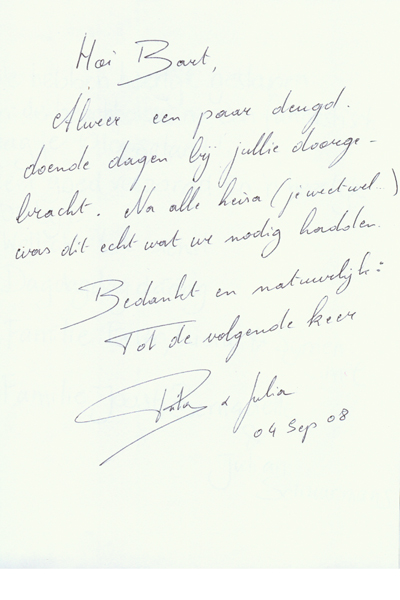 Hoi Bart,
Alweer een paar deugd.
doende dagen bij jullie doorge-
bracht. Na alle heisa (je weet wel..)
was dit echt wat we nodig hadden.
Bedankt en natuurlijk:
Tot de volgende keer
& Julia
04 Sep 08